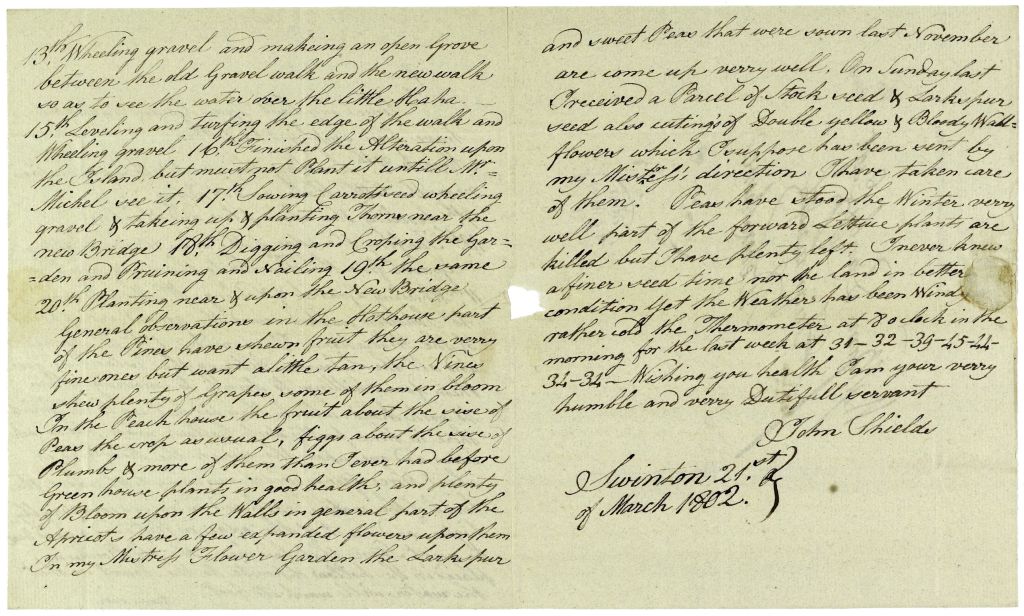 13th. Wheeling gravel and makeing an open Grove
between the old Gravel walk and the new walk
so as to see the water over the little Haha —
15th Leveling and turfing the edge of the walk and
Wheeling gravel 16th Finished the Alteration upon
the Island, but must not Plant it untill Mr =
Michel see it. 17th Sowing Carrot seed wheeling
gravel & takeing up & planting Thorns near the
new Bridge 18th Digging and Croping the Gar=
=den and Pruining and Nailing 19th the same
20th Planting near & upon the New Bridge
General observations in the Hothouse part
of the Pines have shewn fruit they are verry
fine ones but want a little tan, the Vines
shew plenty of Grapes, some of them in bloom
In the Peach house the fruit about the sise of
Peas the crop as usual, figgs about the sise of
Plumbs & more of them than I ever had before
Green house plants in good health, and plenty
of Bloom upon the Walls in general part of the
Apricots have a few expanded flowers upon them
In my Mistress Flower Garden the Larkspur
and sweet Peas that were sown last November
are come up verry well. On Sunday last
I received a Parcel of Stock seed & Larkspur
seed also cutings of Double yellow & Bloody Wall=
flowers which I suppose has been sent by
my Misters's direction I have taken care
of them. Peas have stood the Winter verry
well part of the forward Lettuce plants are
killed but I have plenty left. I never knew
a finer seed time nor the land in better
condition yet the Weather has been Wind
rather cold the Thermometer at 8 oclock in the
morning for the last week at 31 – 32 – 39 – 45 – 44
34 – 34 – Wishing you health I am your verry
humble and verry Dutifull servant
John Shields
Swinton 21st
of March 1802.